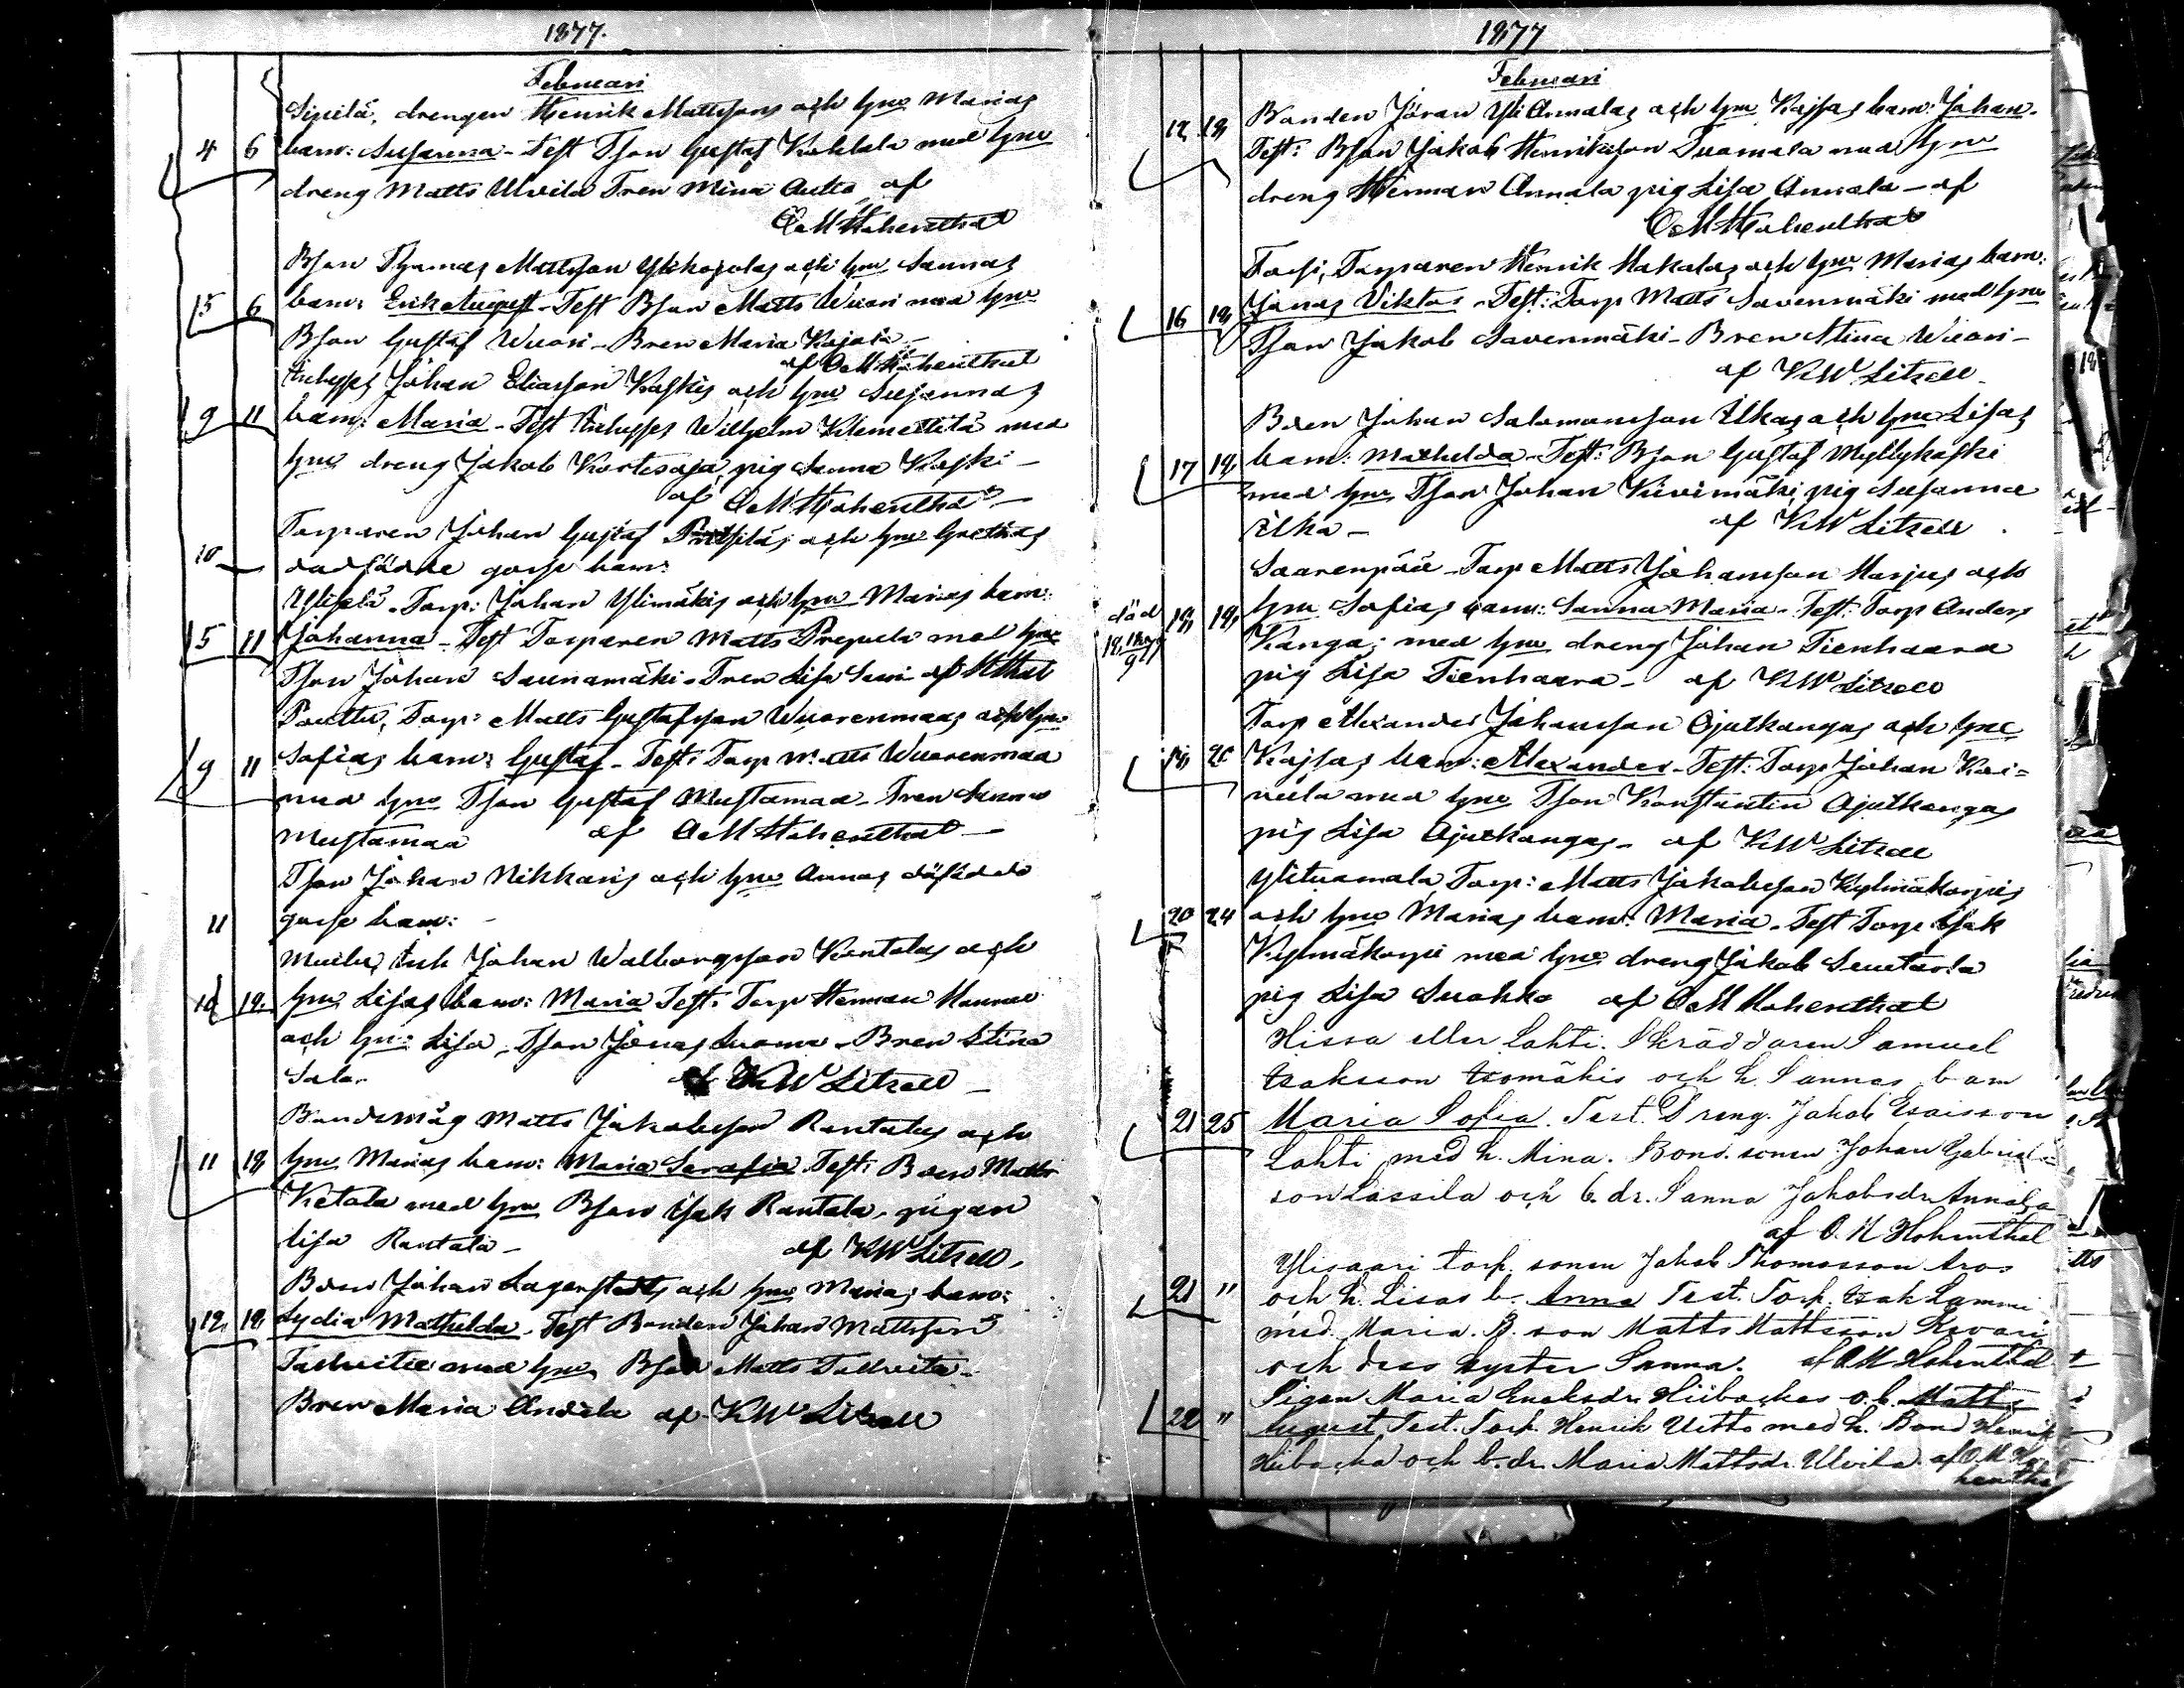 1877.
Februari
Sipilä, drengen Henrik Mattssons och hns Marias
4 6 barn: Susanna - Test Tson Gustaf Kokkala med hns
dreng Matts Ulvila Tren Mina Autto af
O M Hohenthal
Bson Thomas Mattsson Ylikojolas och hns Sannas
5 6 barn: Erik August - Test Bson Matts Wuori med hns
Bson Gustaf Wuori - Bren Maria Kojola -
af O M Hohenthal
Inhyses Johan Eliasson Koskis och hns Susannas
9 11 barn: Maria - Test Inhyses Wilhelm Klemettilä med
hns dreng Jakob Kortesoja, pig Sanna Koski -
af O M Hohenthal -
Torparen Johan Gustaf och hns Grethas
10 - dödfödde gosse barn:
Torp: Johan Ylimäkis och hns Marias barn:
5 11 Johanna - Test Torparen Matts med hns
Tson Johan Saunamäki - Tren Lisa af Hthal
Torp: Matts Gustafsson Wuorenmaas och hns
9 11 Sofias barn: Gustaf - Test: Torp Matts Wuorenmaa
med hns Tson Gustaf Mustamaa - Tren Sanna
Mustamaa af O M Hohenthal -
Tson Johan Nikkaris och hns Annas dödfödde
11 gosse barn: -
Inh Johan Walborgsson Kentalas och
10 12 hns Lisas barn: Maria Test: Torp Herman
och hns Lisa, Tson Jonas Luoma - Bren Stina
Sala - af K W Litzell -
Bondemåg Matts Jakobsson Rantalas och
11 18 hns Marias barn: Maria Serafia Test: Bden Matts
Ketola med hns Bson Isak Rantala, pigan
Lisa Rantala - af K W Litzell.
Bden Johan Lagerstedts och hns Marias barn:
12 18 Lydia Mathilda - Test Bonden Johan Mattsson
med hns Bson Matts
Bren Maria Andela af K W Litzell
1877
Februari
Bonden Jöran Yli Annalas och hns Kajsas barn: Johan -
12 18 Test: Bson Jakob Henriksson Tuomala med hns
dreng Herman Annala pig Lisa Annala - af
O M Hohenthal
Torparen Henrik Hakalas och hns Marias barn:
16 18 Jonas Viktor - Test: Torp Matts Savenmäki med hns
Tson Jakob Savenmäki - Bren Stina Wuori -
af K W Litzell.
Bden Johan Salomonsson Ilkas och hns Lisas
17 18 barn: Mathilda - Test: Bson Gustaf Myllykoski
med hns Tson Johan Kivimäki, pig Susanna
Ilka - af K W Litzell.
Saarenpää - Torp Matts Johansson Harjus och
död 18 18 hns Sofias barn: Sanna Maria - Test: Torp Anders
Kanga; med hns dreng Johan Tienhaara
pig Lisa Tienhaara - af K W Litzell
Torp Alexander Johansson Ojutkangas och hns
20 Kajsas barn: Alexander - Test: Torp Johan
med hns Tson Konstantin Ojutkangas
pig Lisa Ojutkangas - af K W Litzell
Ylituomala, Torp: Matts Jakobsson Kylmäkorpis
20 24 och hns Marias barn: Maria - Test Torp Isak
Kylmäkorpi med hns dreng Jakob
pig Lisa Suokko af O M Hohenthal
Hissa eller Lahti. Skräddaren Samuel
Isaksson Isomäkis och h. Sannas barn
21 25 Maria Sofia. Test. Dreng. Jakob Esaisson
Lahti med h. Mina. Bond. sonen Johan Gabriels=
son Lassila och b. dr. Sanna Jakobsdr Annala
af O. M Hohenthal
Ylisaari torp. sonen Jakob Thomasson Aros
21 " och h. Lisas b. Anna Test. Torp. Isak Lammi
med Maria. B. son Matts Mattsson
och dess syster Sanna. af O M Hohenthal
Pigan Maria Hiibackas o. b. Matts
22 " August Test. Torp. Henrik Uitto med h. Bond Henrik
Hiibacka och b. dr. Maria Mattsdr. Ulvila af O M Ho
henthal